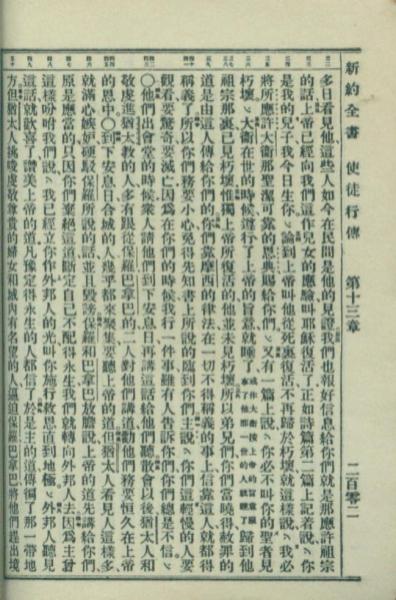 新約全書 使徒行傳 第十三章 二百零二
多日看見他這些人如今在民間是他的見證我們也報好信息給你們就是那應許祖宗
的話上帝已經向我們這作兒女的應驗叫耶穌復活了正如詩篇第二篇上記着說你
是我的兒子我今日生你論到上帝叫他從死裏復活不再歸於朽壞就這樣說我必
將所應許大衛那聖潔可靠的恩典賜給你們又有一篇上說你必不叫你的聖者見
朽壞大衛在世的時候遵行了上帝的旨意就睡了歸到他
祖宗那裏已見朽壞惟獨上帝所復活的他並未見朽壞所以弟兄們你們當曉得赦罪的
道是由這人傳給你們的你們靠摩西的律法在一切不得稱義的事上信靠這人就都得
稱義了所以你們務要小心免得先知書上所說的臨到你們主說你們這輕慢的人要
觀看要驚奇要滅亡因為在你們的時候我行一件事雖有人告訴你們你們總是不信
○他們出會堂的時候衆人請他們到下安息日再講這話給他們聽散會以後猶太人和
敬虔進猶太教的人多有跟從保羅巴拿巴的二人對他們講道勸他們務要恒久在上帝
的恩中○到下安息日合城的人幾乎都來聚集要聽上帝的道但猶太人看見人這樣多
就滿心嫉妒硬駁保羅所說的話並且毀謗保羅和巴拿巴放膽說上帝的道先講給你們
原是應當的只因你們棄絕這道斷定自己不配得永生我們就轉向外邦人去因為主曾
這樣吩咐我們說我已經立你作外邦人的光叫你施行救恩直到地極外邦人聽見
這話就歡喜了讚美上帝的道凡豫定得永生的人都信了於是主的道傳徧了那一帶地
方但猶太人挑唆虔敬尊貴的婦女和城內有名望的人逼迫保羅巴拿巴將他們趕出境